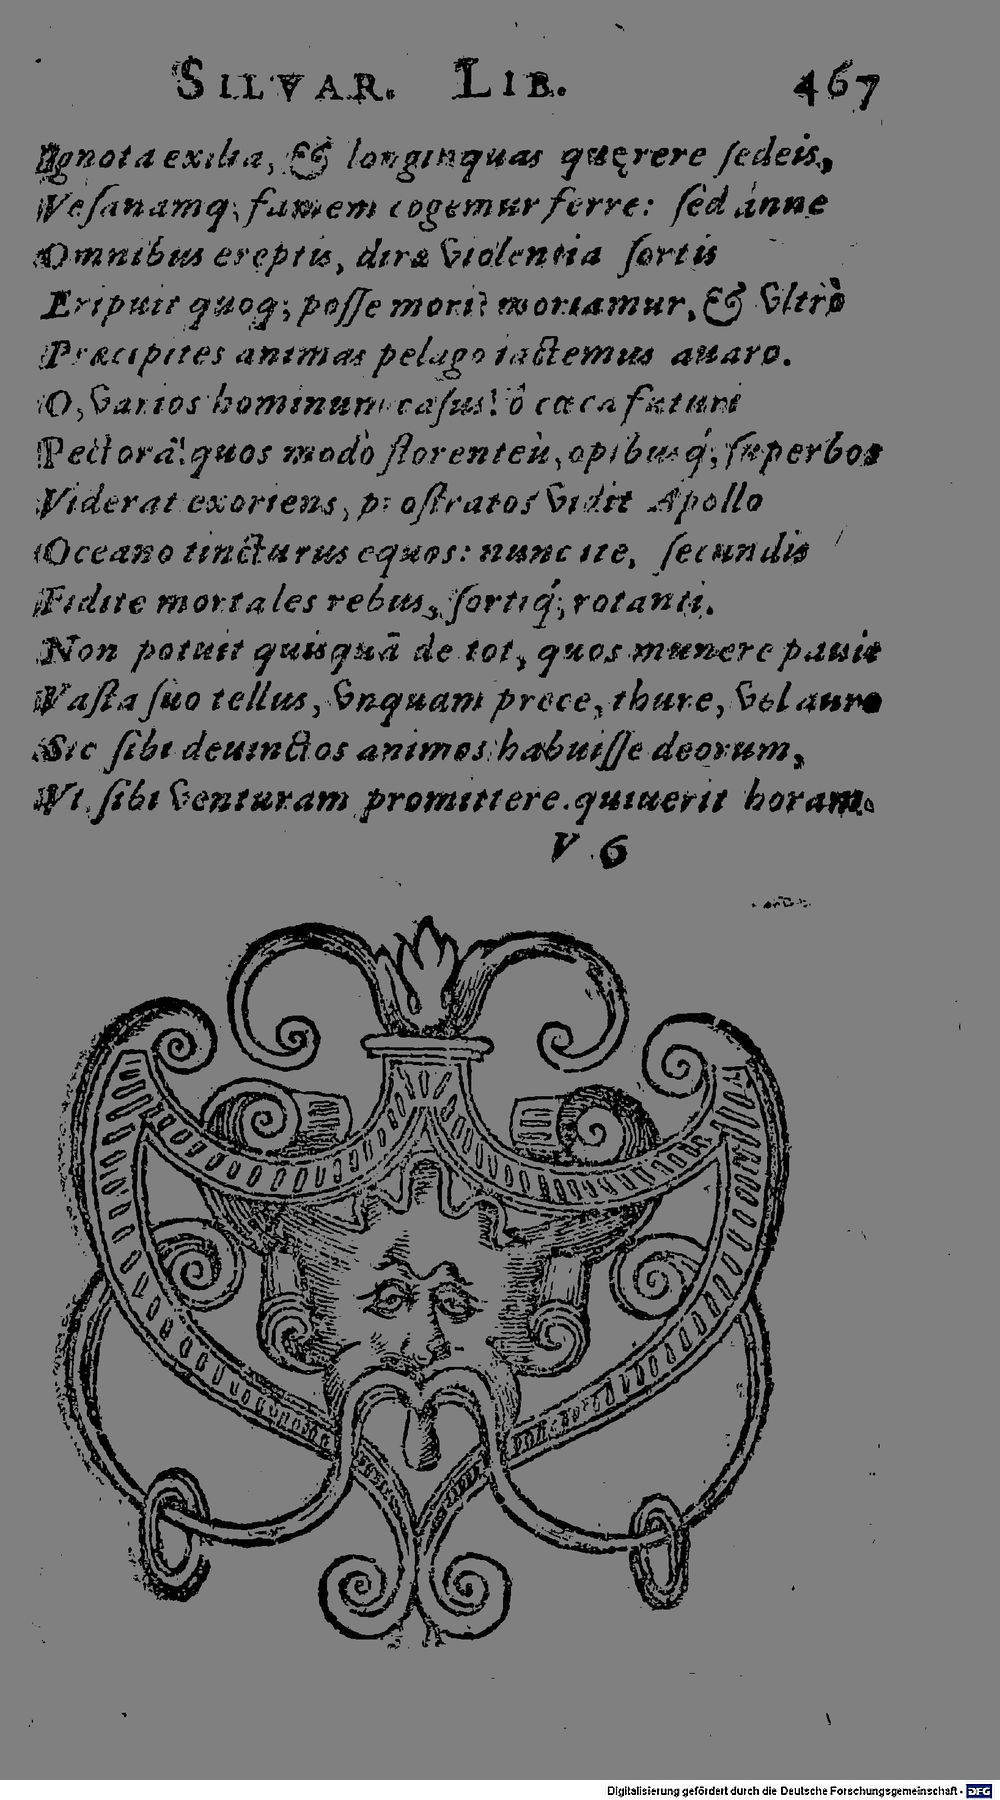 SILVAR. LIB. 467
Ignota exilia, & longinquas quęrere ſedeis,
Veſanamq; famem cogemur ferre: ſed ànne
Omnibus ereptis, diræ violentia ſortis
Eripuit quoq; poſſe mori? moriamur, & vltrò
Præcipites animas pelago iactemus auaro.
O, varios hominum caſus! ô cæca futuri
Pectora! quos modò florenteis, opibusq́; ſuperbos
Viderat exoriens, proſtratos vidit Apollo
Oceano tincturus equos: nunc ite, ſecundis
Fidite mortales rebus, ſortiq́; rotanti.
Non potuit quisquā de tot, quos munere pauit
Vaſta ſuo tellus, vnquam prece, thure, vel auro
Sic ſibi deuinctos animos habuiſſe deorum,
Vt ſibi venturam promittere quiuerit horam.
V 6
Digitalisierung gefördert durch die Deutsche Forschungsgemeinschaft - DFG